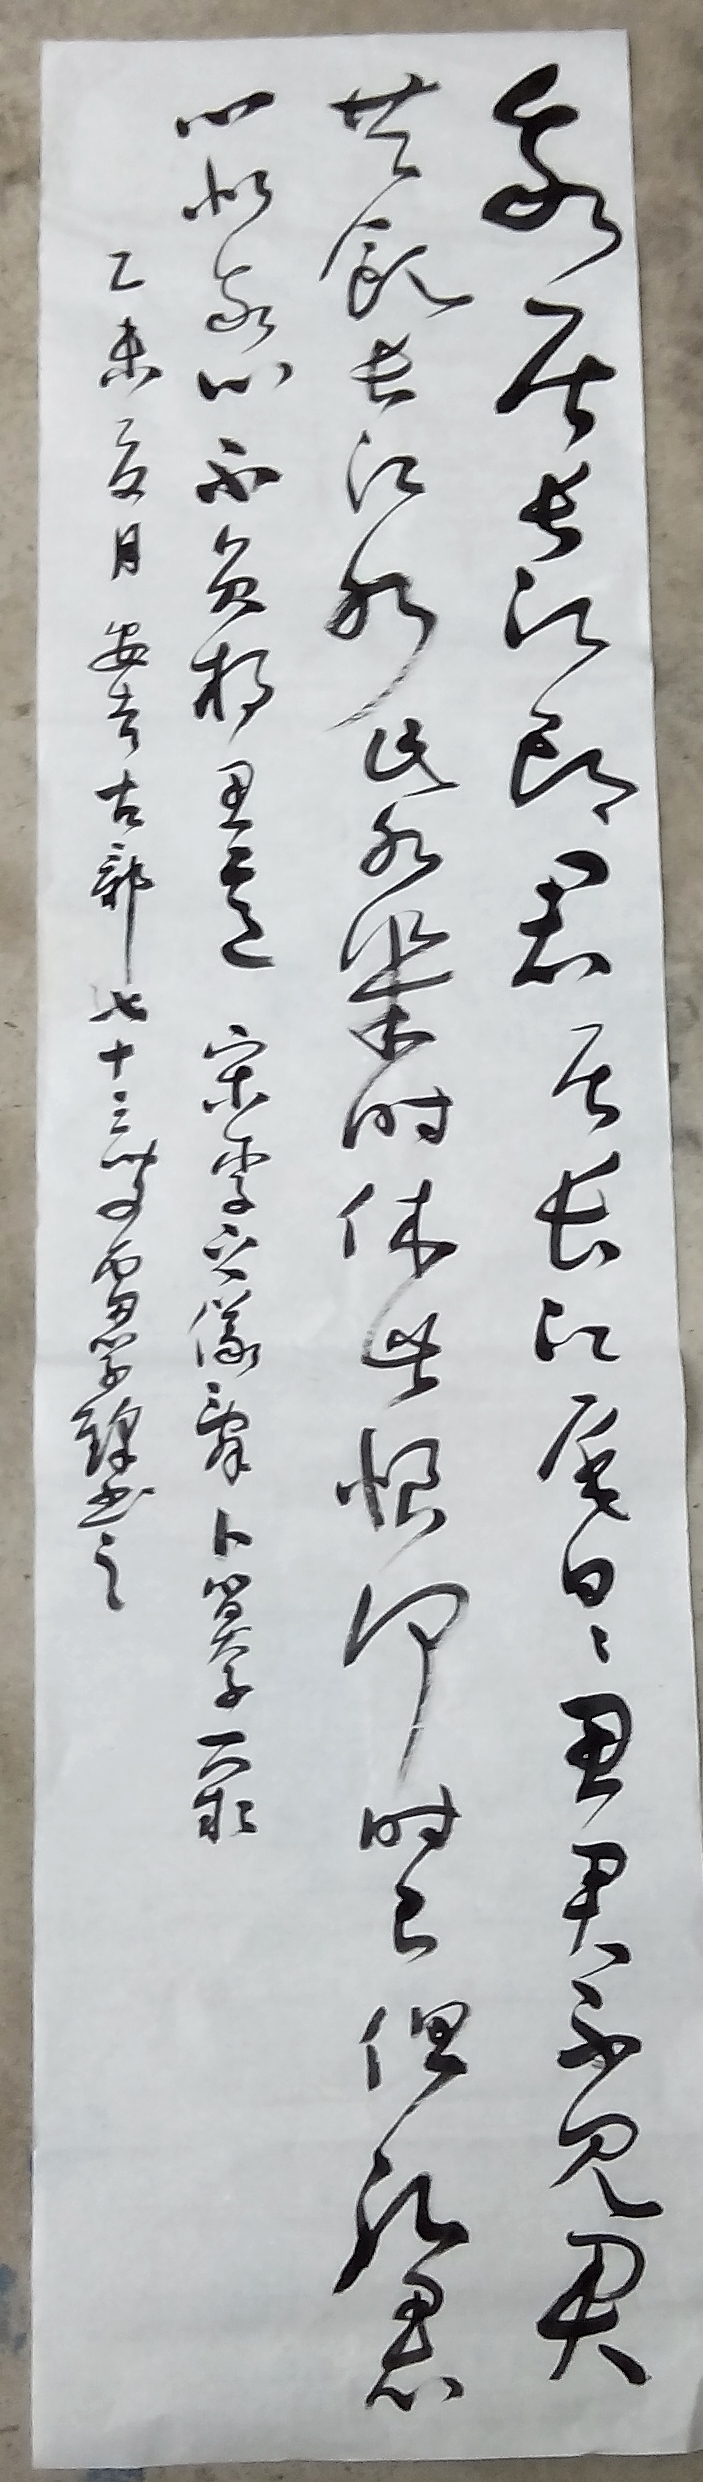 我居长江頭君居长江尾日日思君不见君
共飲长江水此水幾时休此恨何时已但願君
心似我心不負相思意 宋李之儀詞卜算子一首
乙未夏月安吉古鄣七十三叟书之